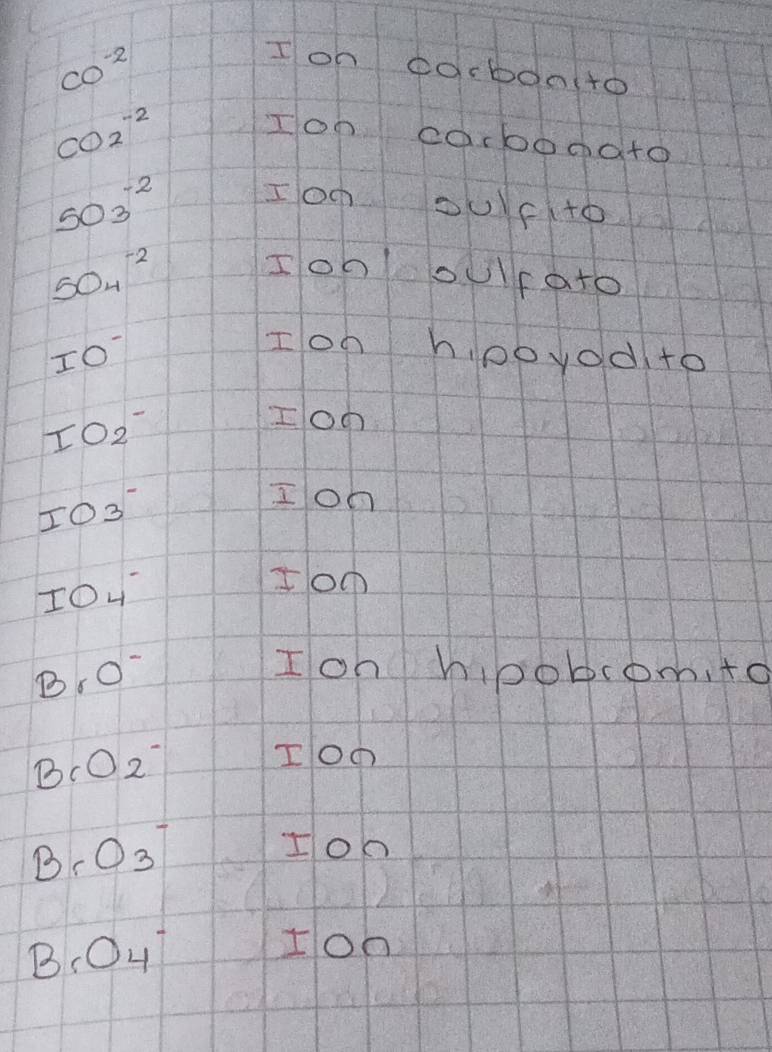 CO⁻² Ion carbonito
CO2⁻² Ion carbonato
SO3⁻² Ion sulfito
SO4⁻² Ion sulfato
IO⁻ Ion hipoyodito
IO2⁻ Ion
IO3⁻ Ion
IO4⁻ Ion
BrO⁻ Ion hipobromito
BrO2⁻ Ion
BrO3⁻ Ion
BrO4⁻ Ion